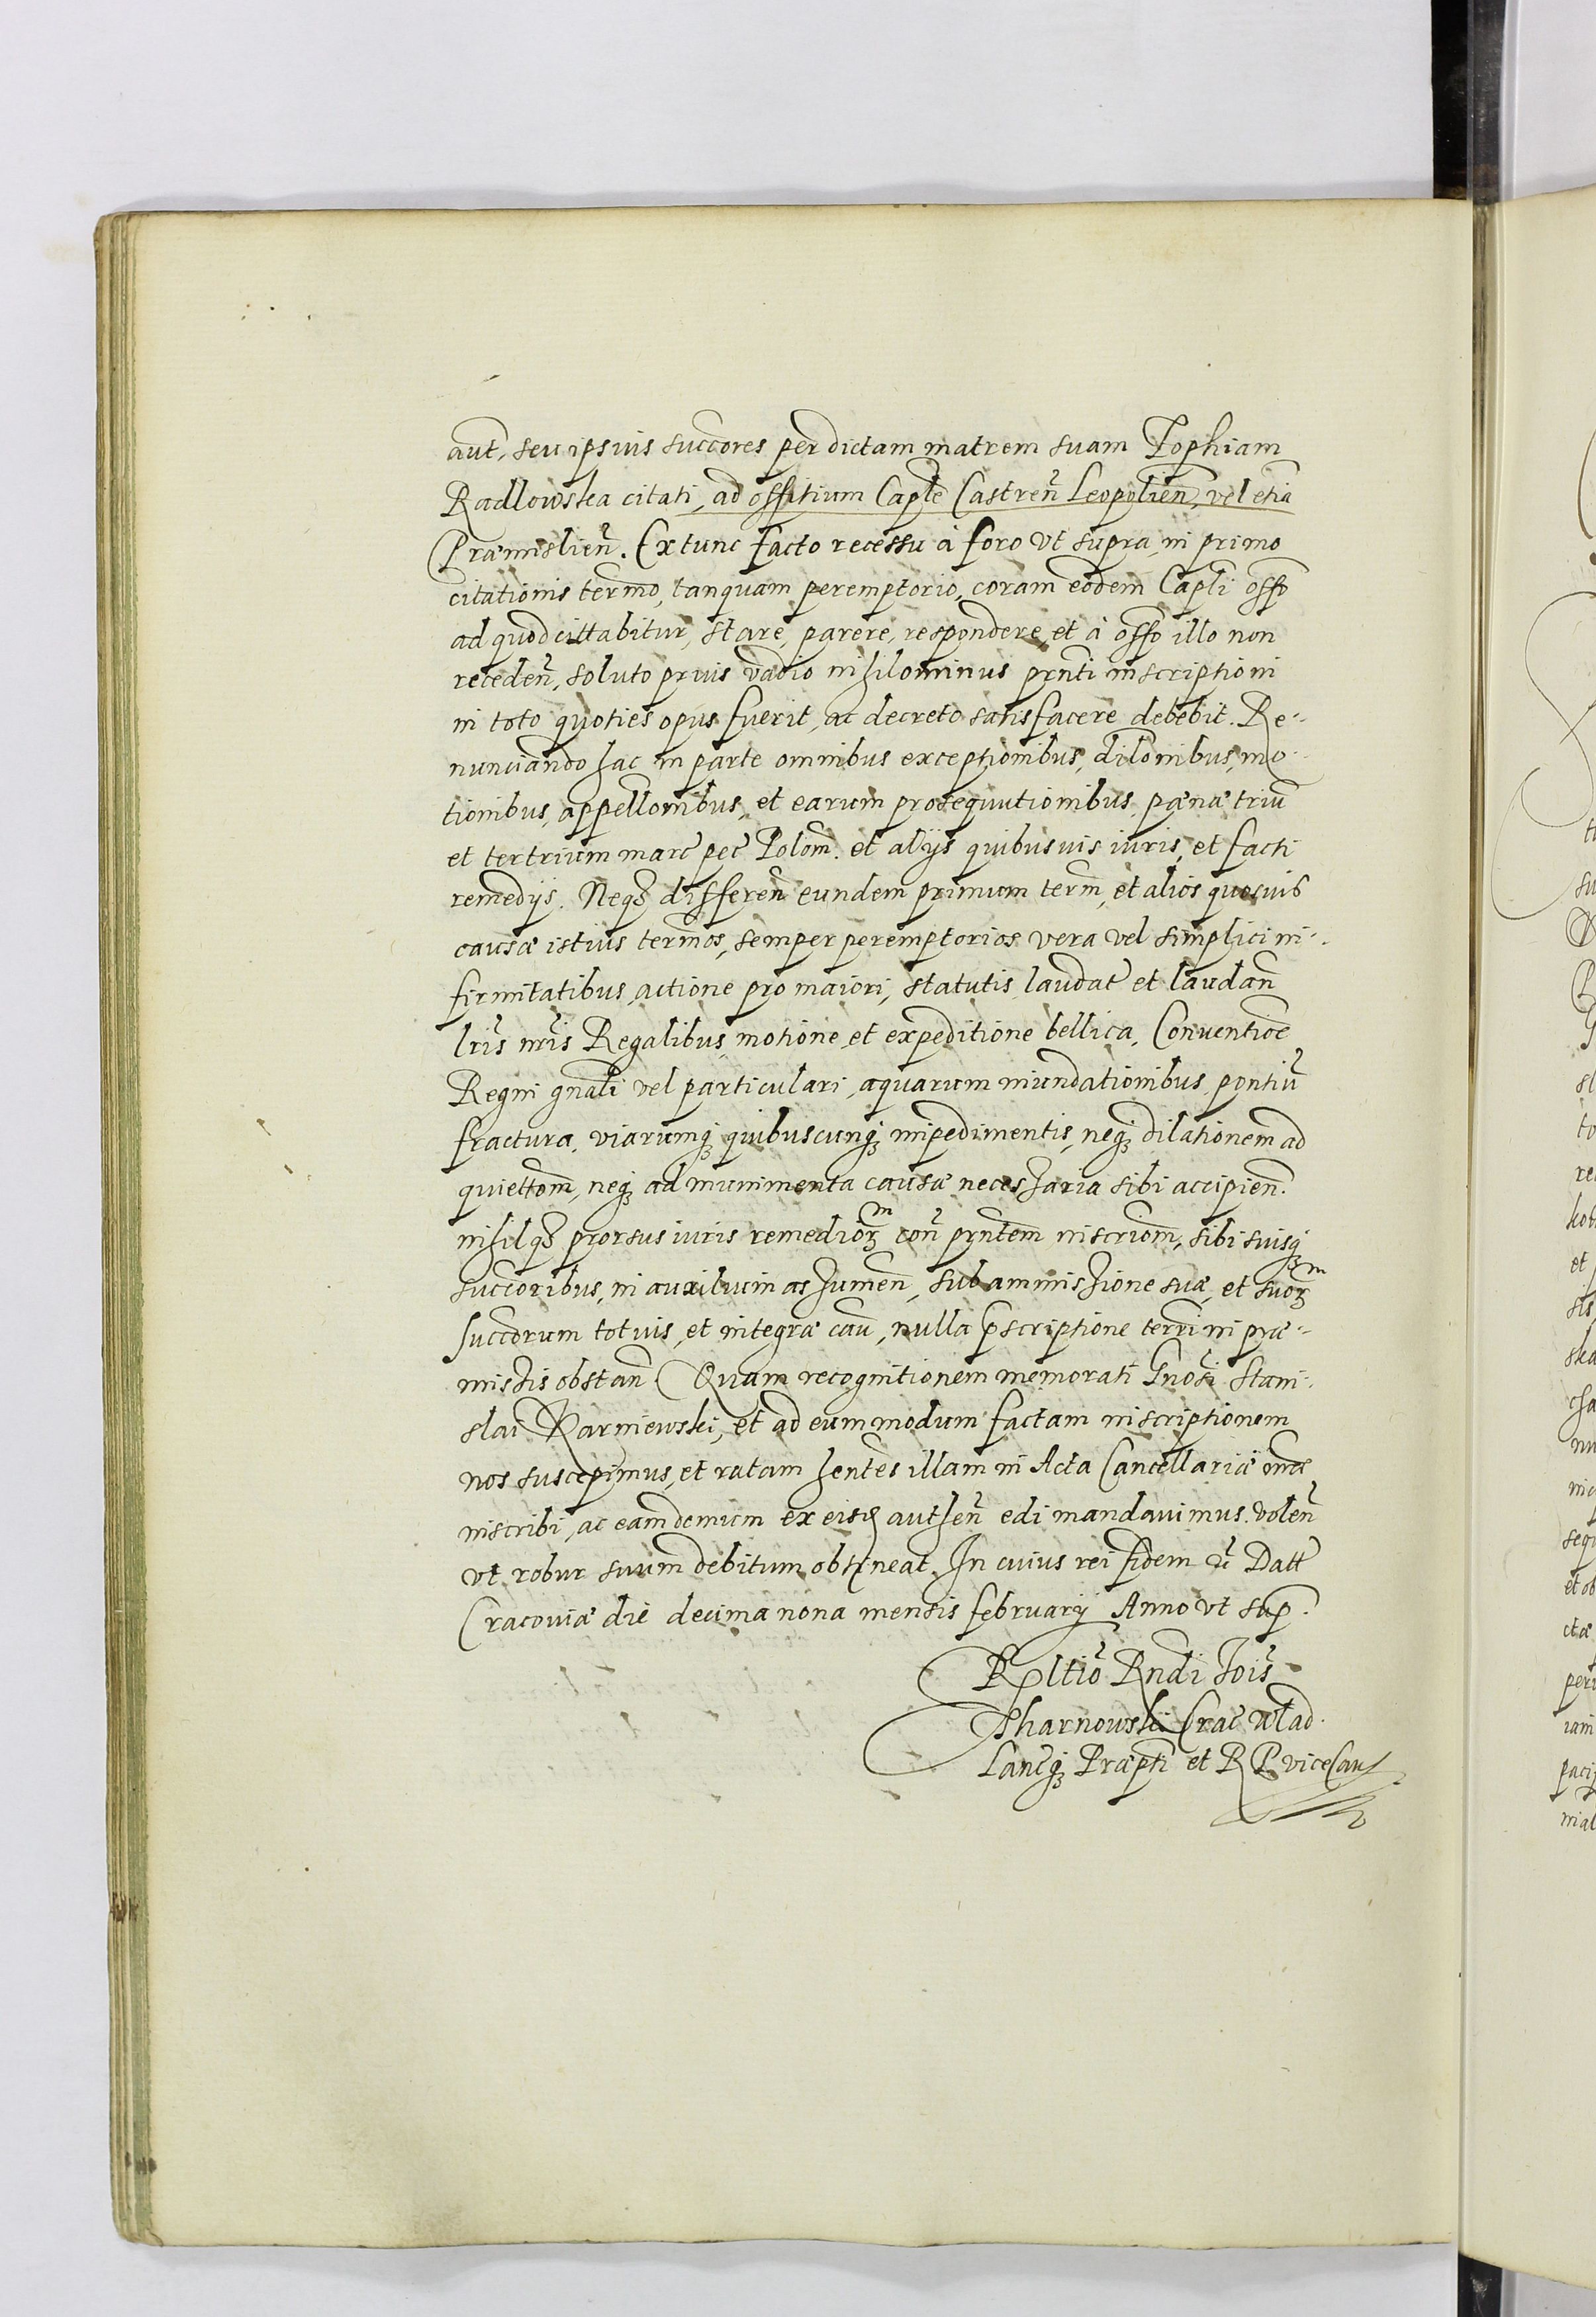 aut, seu ipsius succores per dictam matrem suam Zophiam
Radlowska citati, ad offitium Caple Castren Leopolien, vel etia
Præmislien. Extunc facto recessu à foro vt supra, in primo
citationis termo, tanquam peremptorio, coram eodem Capli offo
ad quod cittabitur, stare, parere, respondere, et à offo illo non
receden, soluto prius vadio nihilominus prnti inscriptioni
in toto quoties opus fuerit, ac decreto satisfacere debebit. Re-
nunciando hac in parte omnibus exceptionibus, dilonibus, mo-
tionibus, appellonibus, et earum prosequutionibus, pænæ triu
et tertrium marc pec Polom. et alijs quibusuis iuris, et facti
remedijs. Neq3 differen eundem primum term, et alios quosuis
causæ istius termos, semper peremptorios vera vel simplici in-
firmitatibus, actione pro maiori, statutis laudat et laudan
lris nris Regalibus, motione, et expeditione bellica, Conuentioe
Regni gnali vel particulari, aquarum inundationibus, pontiu
fractura, viarumq3 quibuscunq3 impedimentis, neq3 dilationem ad
quiettom, neq3 ad munimenta causæ necessaria sibi accipien.
nihilq3 prorsus iuris remedior con prntem inscriom, sibi suisq3
succoribus, in auxilium assumen, sub ammissione suæ, et suor
succorum totius, et integræ cau, nulla pscriptione terri in præ-
missis obstan. Quam recognitionem memorati Gnosi Stani-
slai Karniewski, et ad eum modum factam inscriptionem
nos suscepimus, et ratam hentes illam in Acta Cancellariæ mæ
inscribi, ac eam demum ex eisd authen edi mandauimus. volen
vt robur suum debitum obtineat. In cuius rei fidem Datt
Cracouiæ die decima nona mensis february Anno vt sup.
Rltio Rndi Jois
Tharnowski Crac wlad.
Lancq3 Præpti et R P viceCan